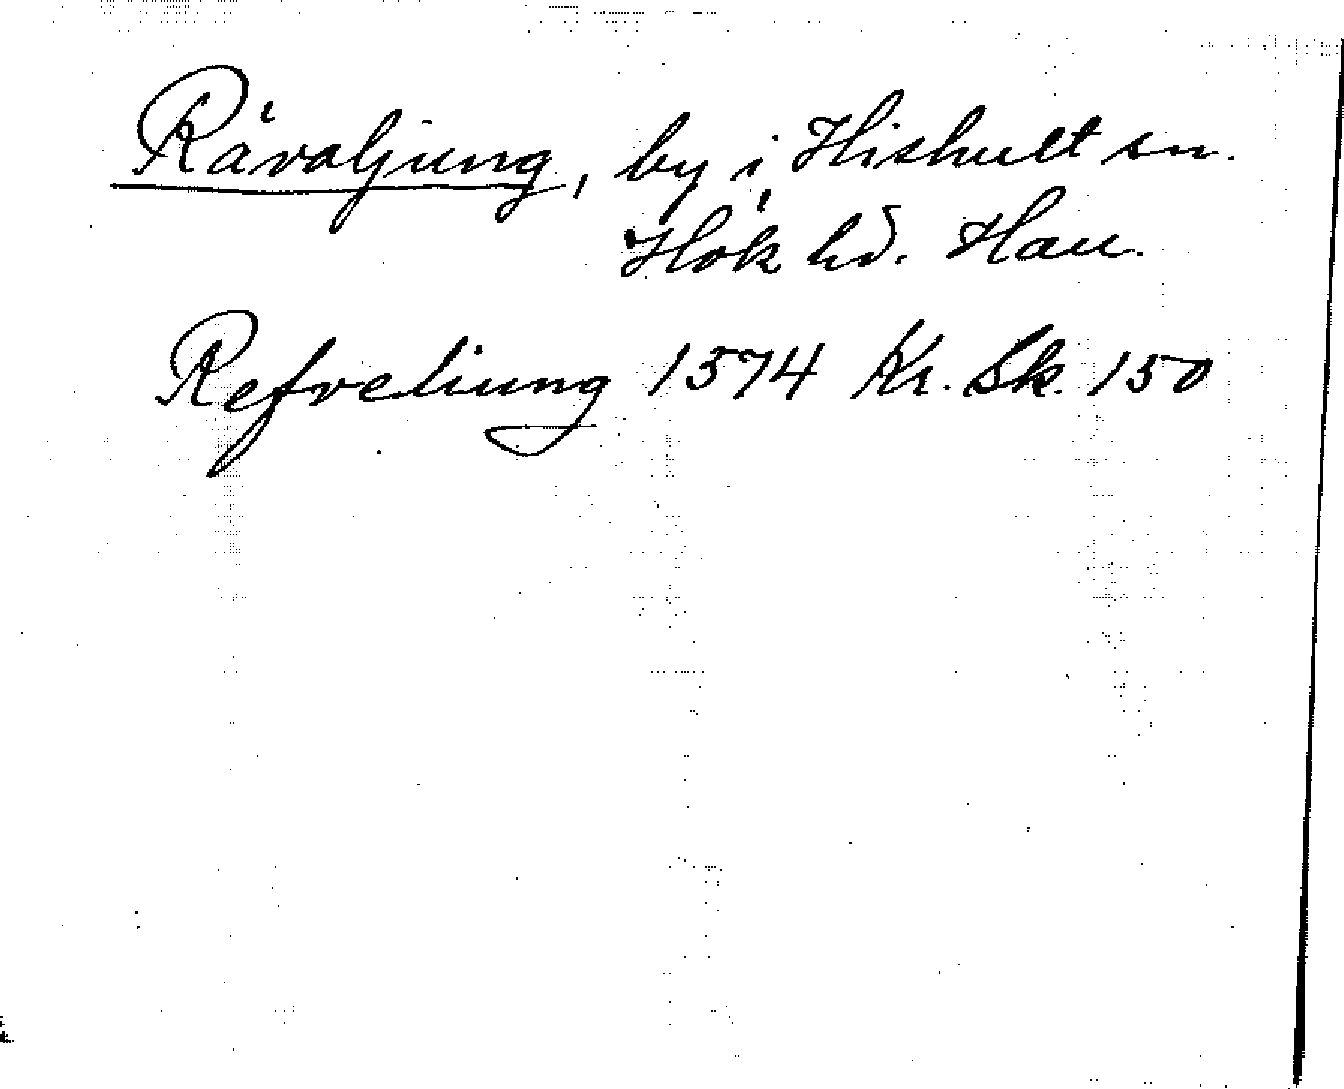 Rävaljung, by i Hishult sn.
Hök hd. Hall.
Refveliung 1574 Kr. Sk. 150